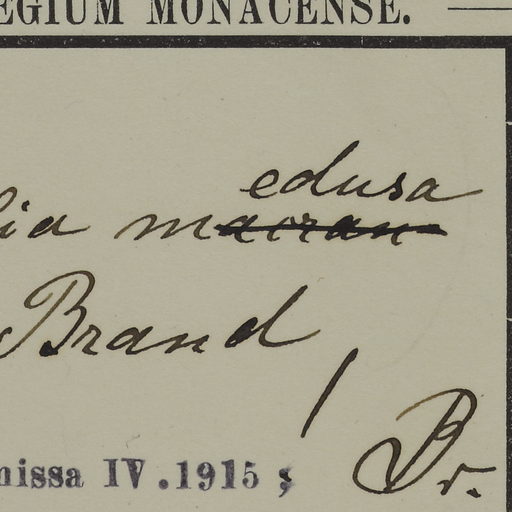 EGIUM MONACENSE.
edusa
lia macran
Brand
Br.
missa IV.1915;